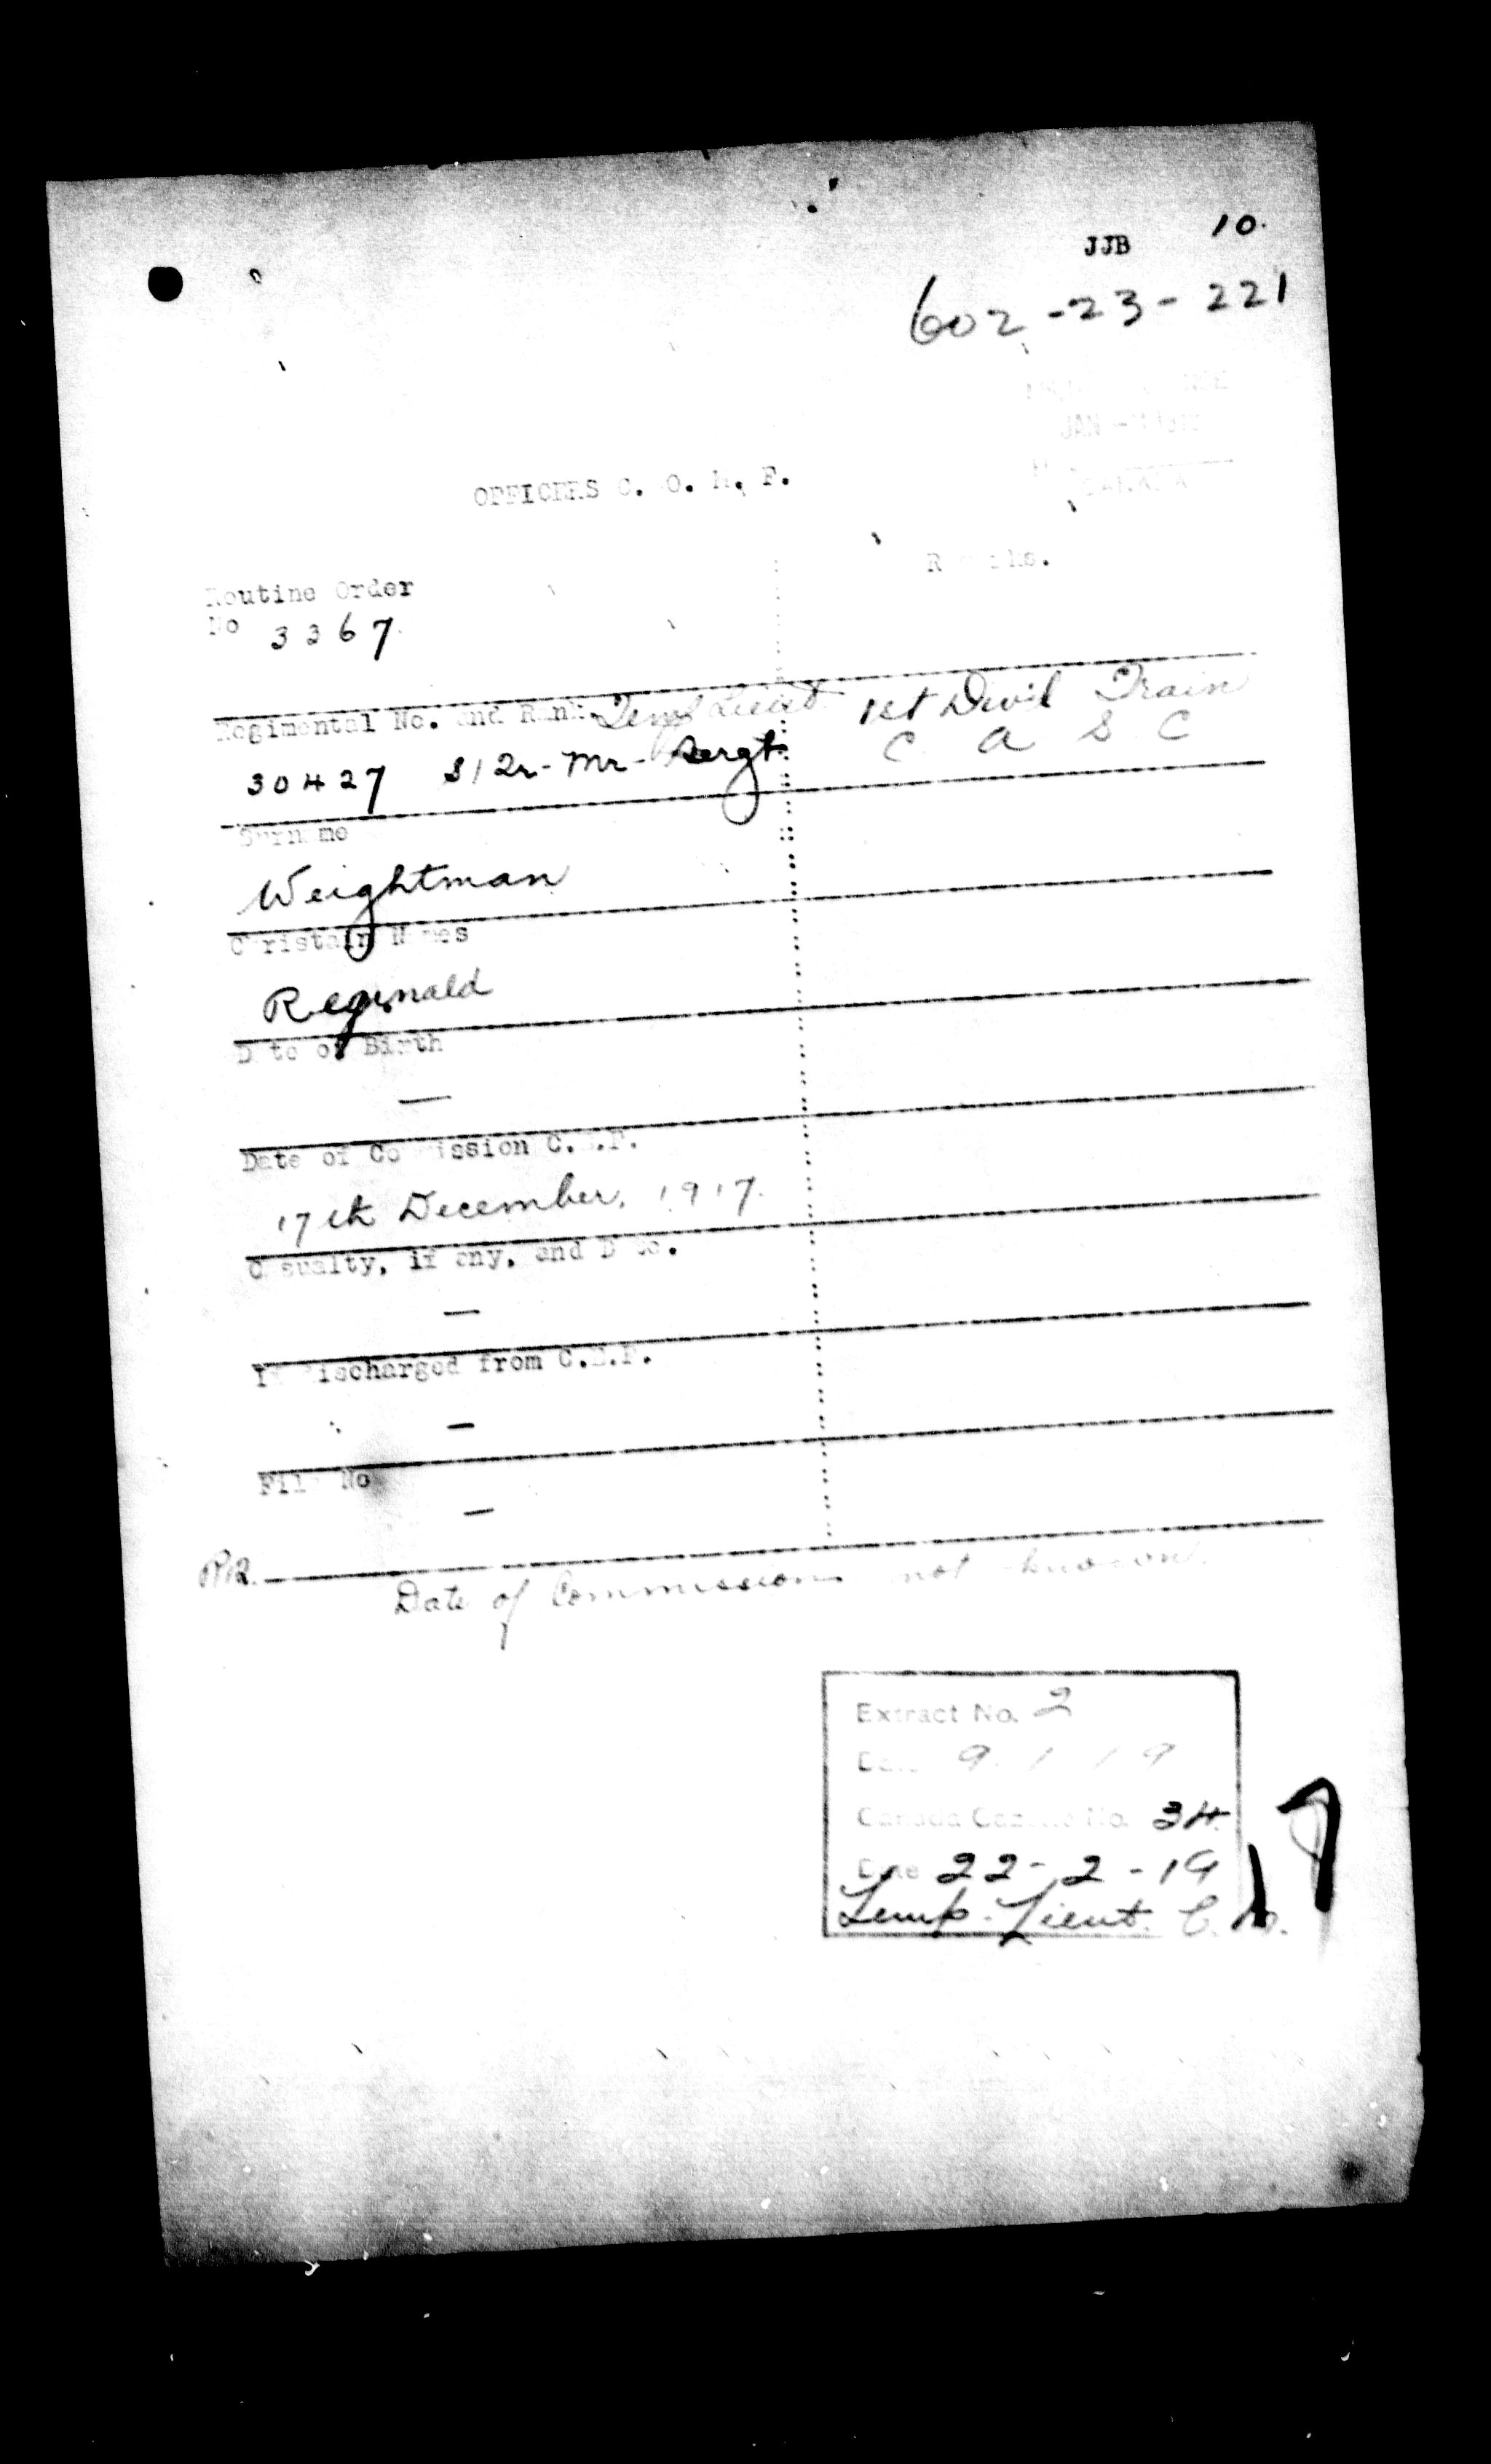 10.
JJB
602-23-221
JAN
CANADA
OFFICERS C. O. M. F.
Routine Order
No 3367
Remarks.
Regimental No. and Rank. Temp Lieut
30427 S/Qr-Mr-Sergt
1st Divil Train
C A S C
Surname
Weightman
Christain Names
Reginald
Date of Birth
—
Date of Commission C.E.F.
17th December, 1917.
Casualty, if any, and Date.
—
If Discharged from C.E.F.
—
File No
—
Date of Commission not known.
Extract No. 2
Date 9.1.19
Canada Gazette No. 34
Date 22-2-19
Temp. Lieut. C.